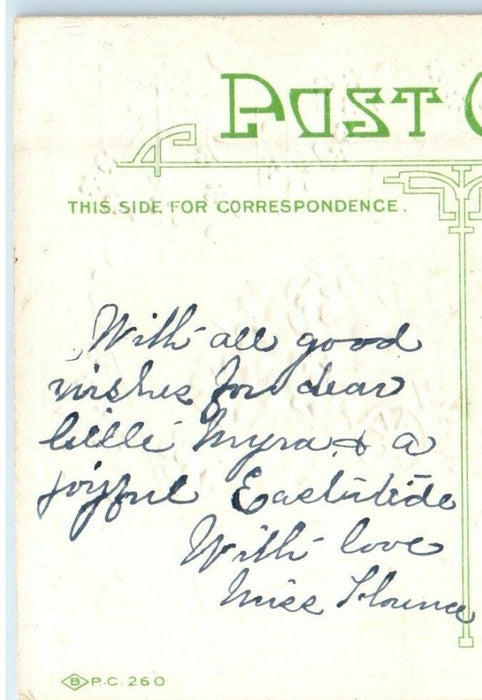 POST C
THIS SIDE FOR CORRESPONDENCE.
With all good
wishes for dear
little Myra & a
joyful Eastertide
With love
Miss Florence
B P.C. 260